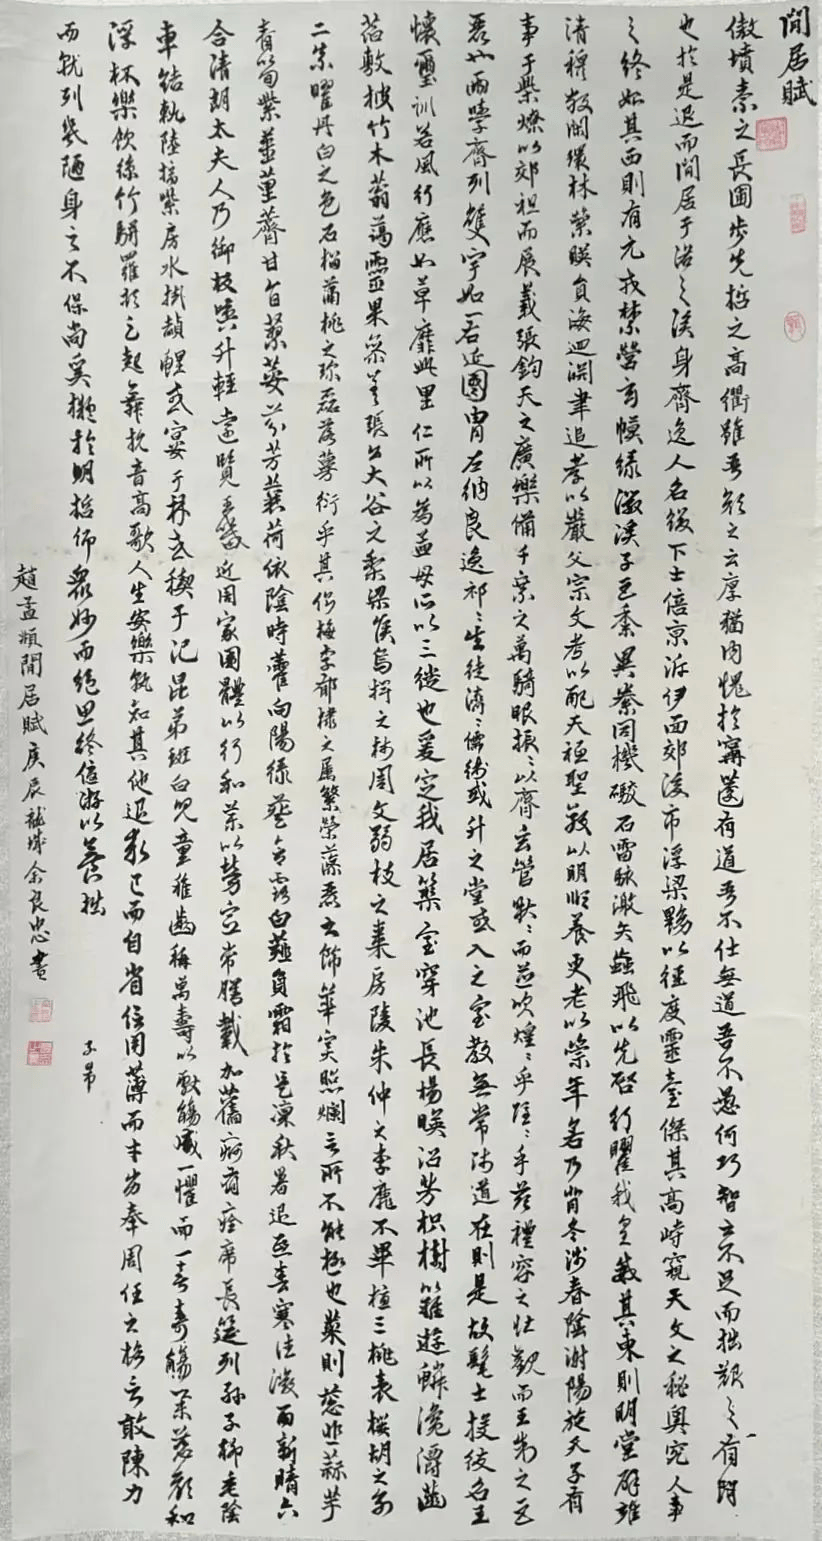 閒居賦
傲墳素之長圃步先哲之高衢雖吾顏之云厚猶內愧於甯蘧有道吾不仕無道吾不愚何巧智之不足而拙艱之有餘
也於是退而閒居于洛之涘身齊逸人名綴下士倍京泝伊面郊後市浮梁黝以徑度靈臺傑其高峙窺天文之秘奧究人事
之終始其西則有元戎禁營玄幙綠徽溪子巨黍異絭同機礮石雷駭激矢蝱飛以先啓行曜我皇威其東則明堂辟雍
清穆敞閑環林縈暎負海迴淵聿追孝以嚴父宗文考以配天祗聖敬以明順養更老以崇年若乃背冬涉春陰謝陽施天子有
事于柴燎以郊祖而展義張鈞天之廣樂備千乘之萬騎服振ミ以齊玄管啾ミ而並吹煌ミ乎隱ミ乎茲禮容之壯觀而王制之巨
麗也兩學齊列雙宇如一右延國胄左納良逸祁ミ生徒濟ミ儒術或升之堂或入之室教無常師道在則是故髦士投紱名王
懷璽訓若風行應如草靡此里仁所以為孟母所以三徙也爰定我居築室穿池長楊暎沼芳枳樹籬遊鱗瀺灂菡
萏敷披竹木蓊藹靈果參差張公大谷之梨梁侯烏椑之柿周文弱枝之棗房陵朱仲之李靡不畢植三桃表櫻胡之別
二柰曜丹白之色石榴蒲桃之珍磊落蔓衍乎其側梅李郁棣之屬繁榮藻麗之飾華實照爛言所不能極也菜則蔥韭蒜芋
青筍紫薑堇薺甘旨蓼荾芬芳蘘荷依陰時藿向陽綠葵含露白薤負霜於是凜秋暑退熙春寒往微雨新晴六
合清朗太夫人乃御板輿升輕軒遠覽王畿近周家園體以行和藥以勞宣常膳載加舊痾有痊席長筵列孫子柳垂陰
車結軌陸摘紫房水掛赬鯉或宴于林或禊于汜昆弟斑白兒童稚齒稱萬壽以獻觴咸一懼而一喜壽觴舉慈顏和
浮杯樂飲絲竹駢羅於足起舞抗音高歌人生安樂孰知其他退求己而自省信用薄而才劣奉周任之格言敢陳力
而就列幾陋身之不保尚奚擬於明哲仰眾妙而絕思終優游以養拙
子昂
趙孟頫閒居賦庚辰龍城余良忠書